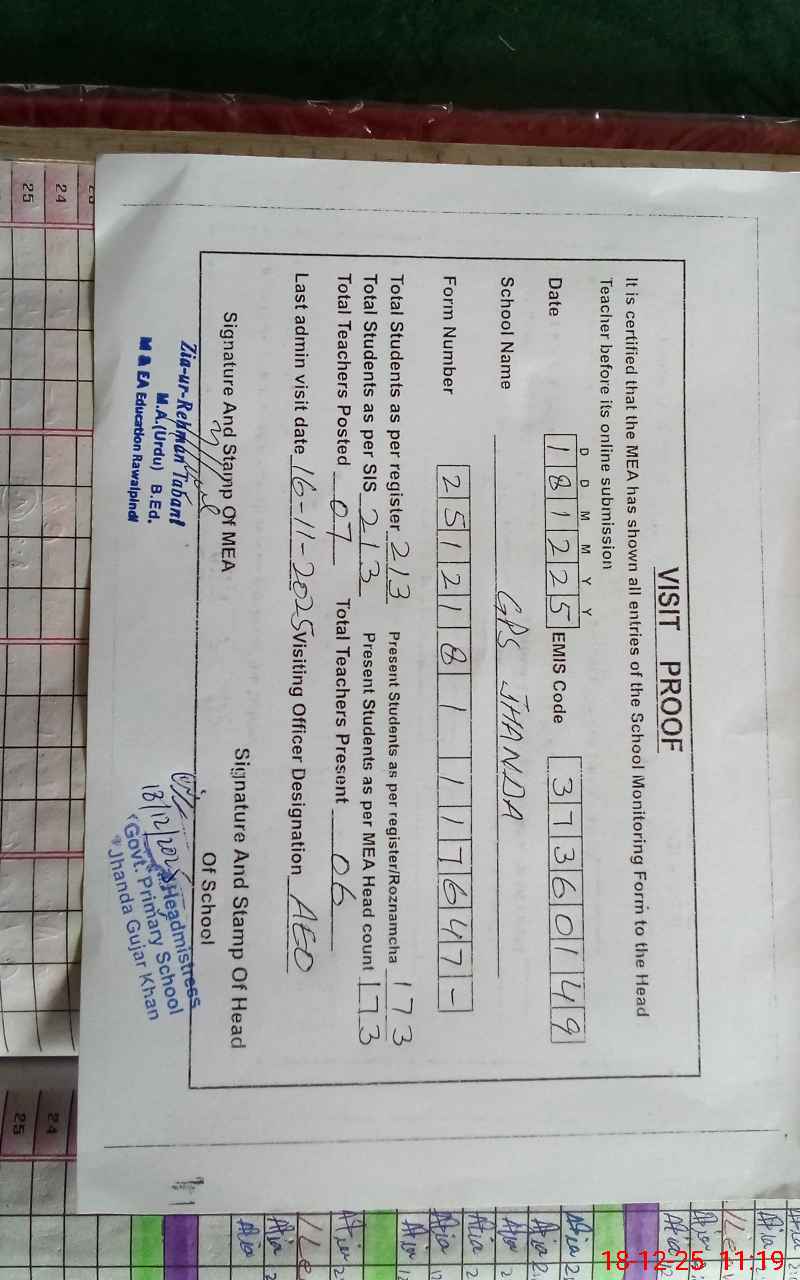 VISIT PROOF
It is certified that the MEA has shown all entries of the School Monitoring Form to the Head
Teacher before its online submission
D D M M Y Y
Date 1 8 1 2 2 5 EMIS Code 3 7 3 6 0 1 4 9
School Name GPS JHANDA
Form Number 2 5 1 2 1 8 1 1 1 7 6 4 7 -
Total Students as per register 213 Present Students as per register/Roznamcha 173
Total Students as per SIS 213 Present Students as per MEA Head count 173
Total Teachers Posted 07 Total Teachers Present 06
Last admin visit date 16-11-2025 Visiting Officer Designation AEO
Signature And Stamp Of MEA Signature And Stamp Of Head
Of School
Zia-ur-Rehman Tabani
M.A.(Urdu) B.Ed.
M & EA Education Rawalpindi
18/12/2025
Headmistress
Govt. Primary School
Jhanda Gujar Khan
24
25
24
25
18-12-25 11:19